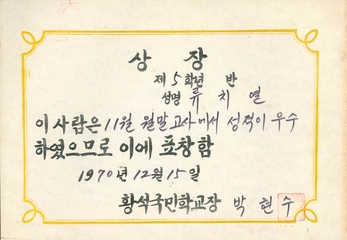 상 장
제 5 학년 반
성명 류 치 열
이 사람은 11월 월말고사에서 성적이 우수
하였으므로 이에 표창함
1970년 12월 15일
황석국민학교장 박 현 수